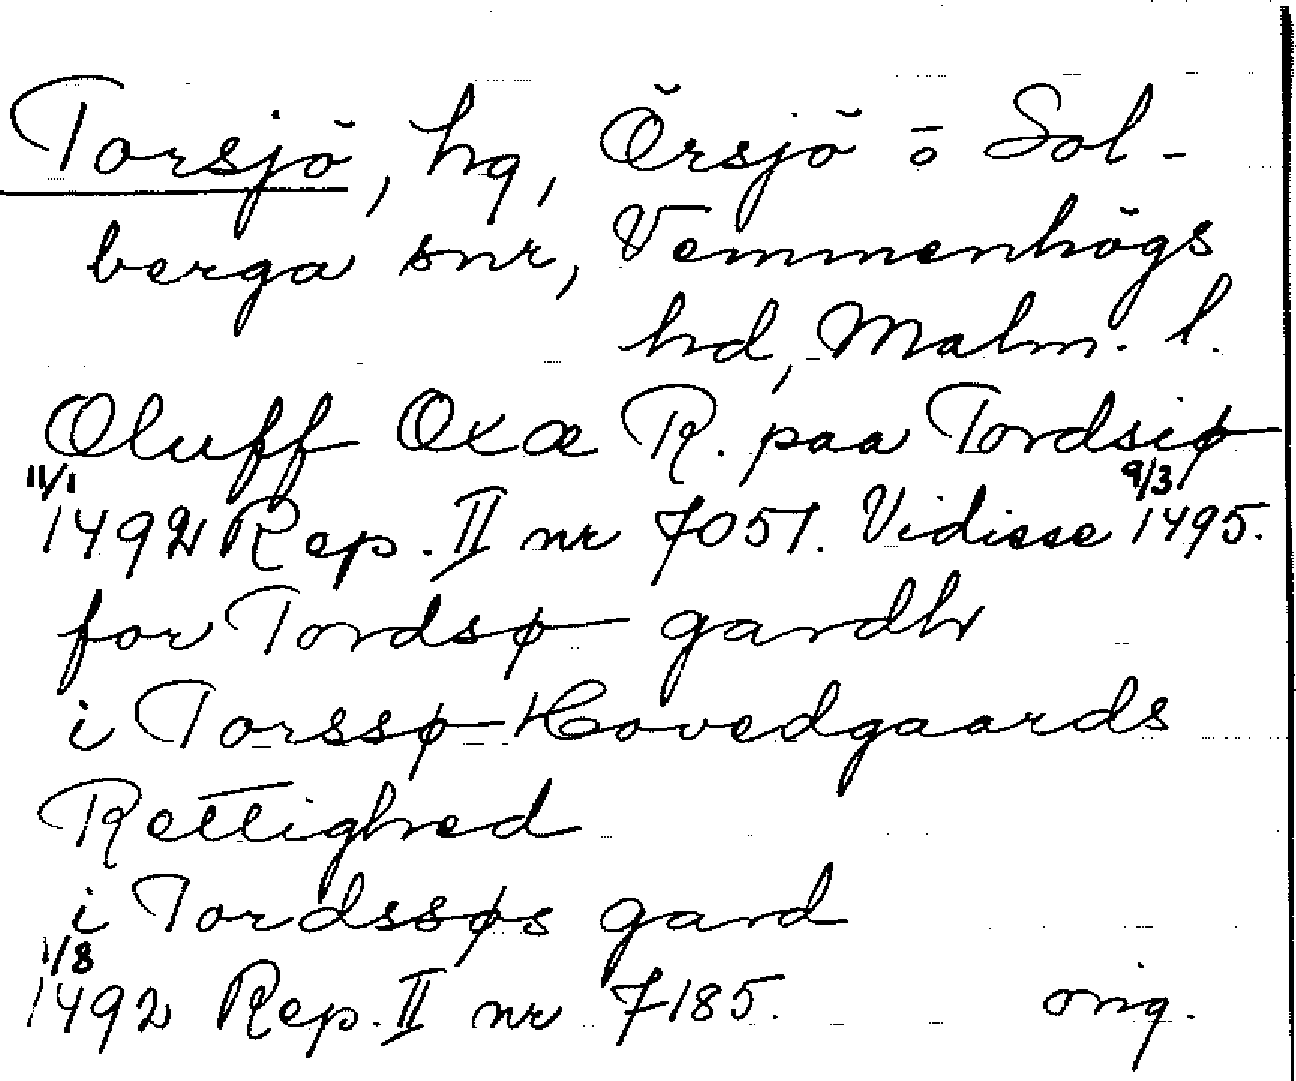 Torsjö, hg, Örsjö o Sol-
berga snr, Vemmenhögs
hd, Malm. l.
Oluff Oxæ R. paa Tordsiø
11/1 9/3
1492 Rep. II nr 7051. Vidisse 1495.
for Tordsø gardh
i Torssø Hovedgaards
Rettighed
i Tordssøs gard
1/8
1492 Rep. II nr 7185. orig.